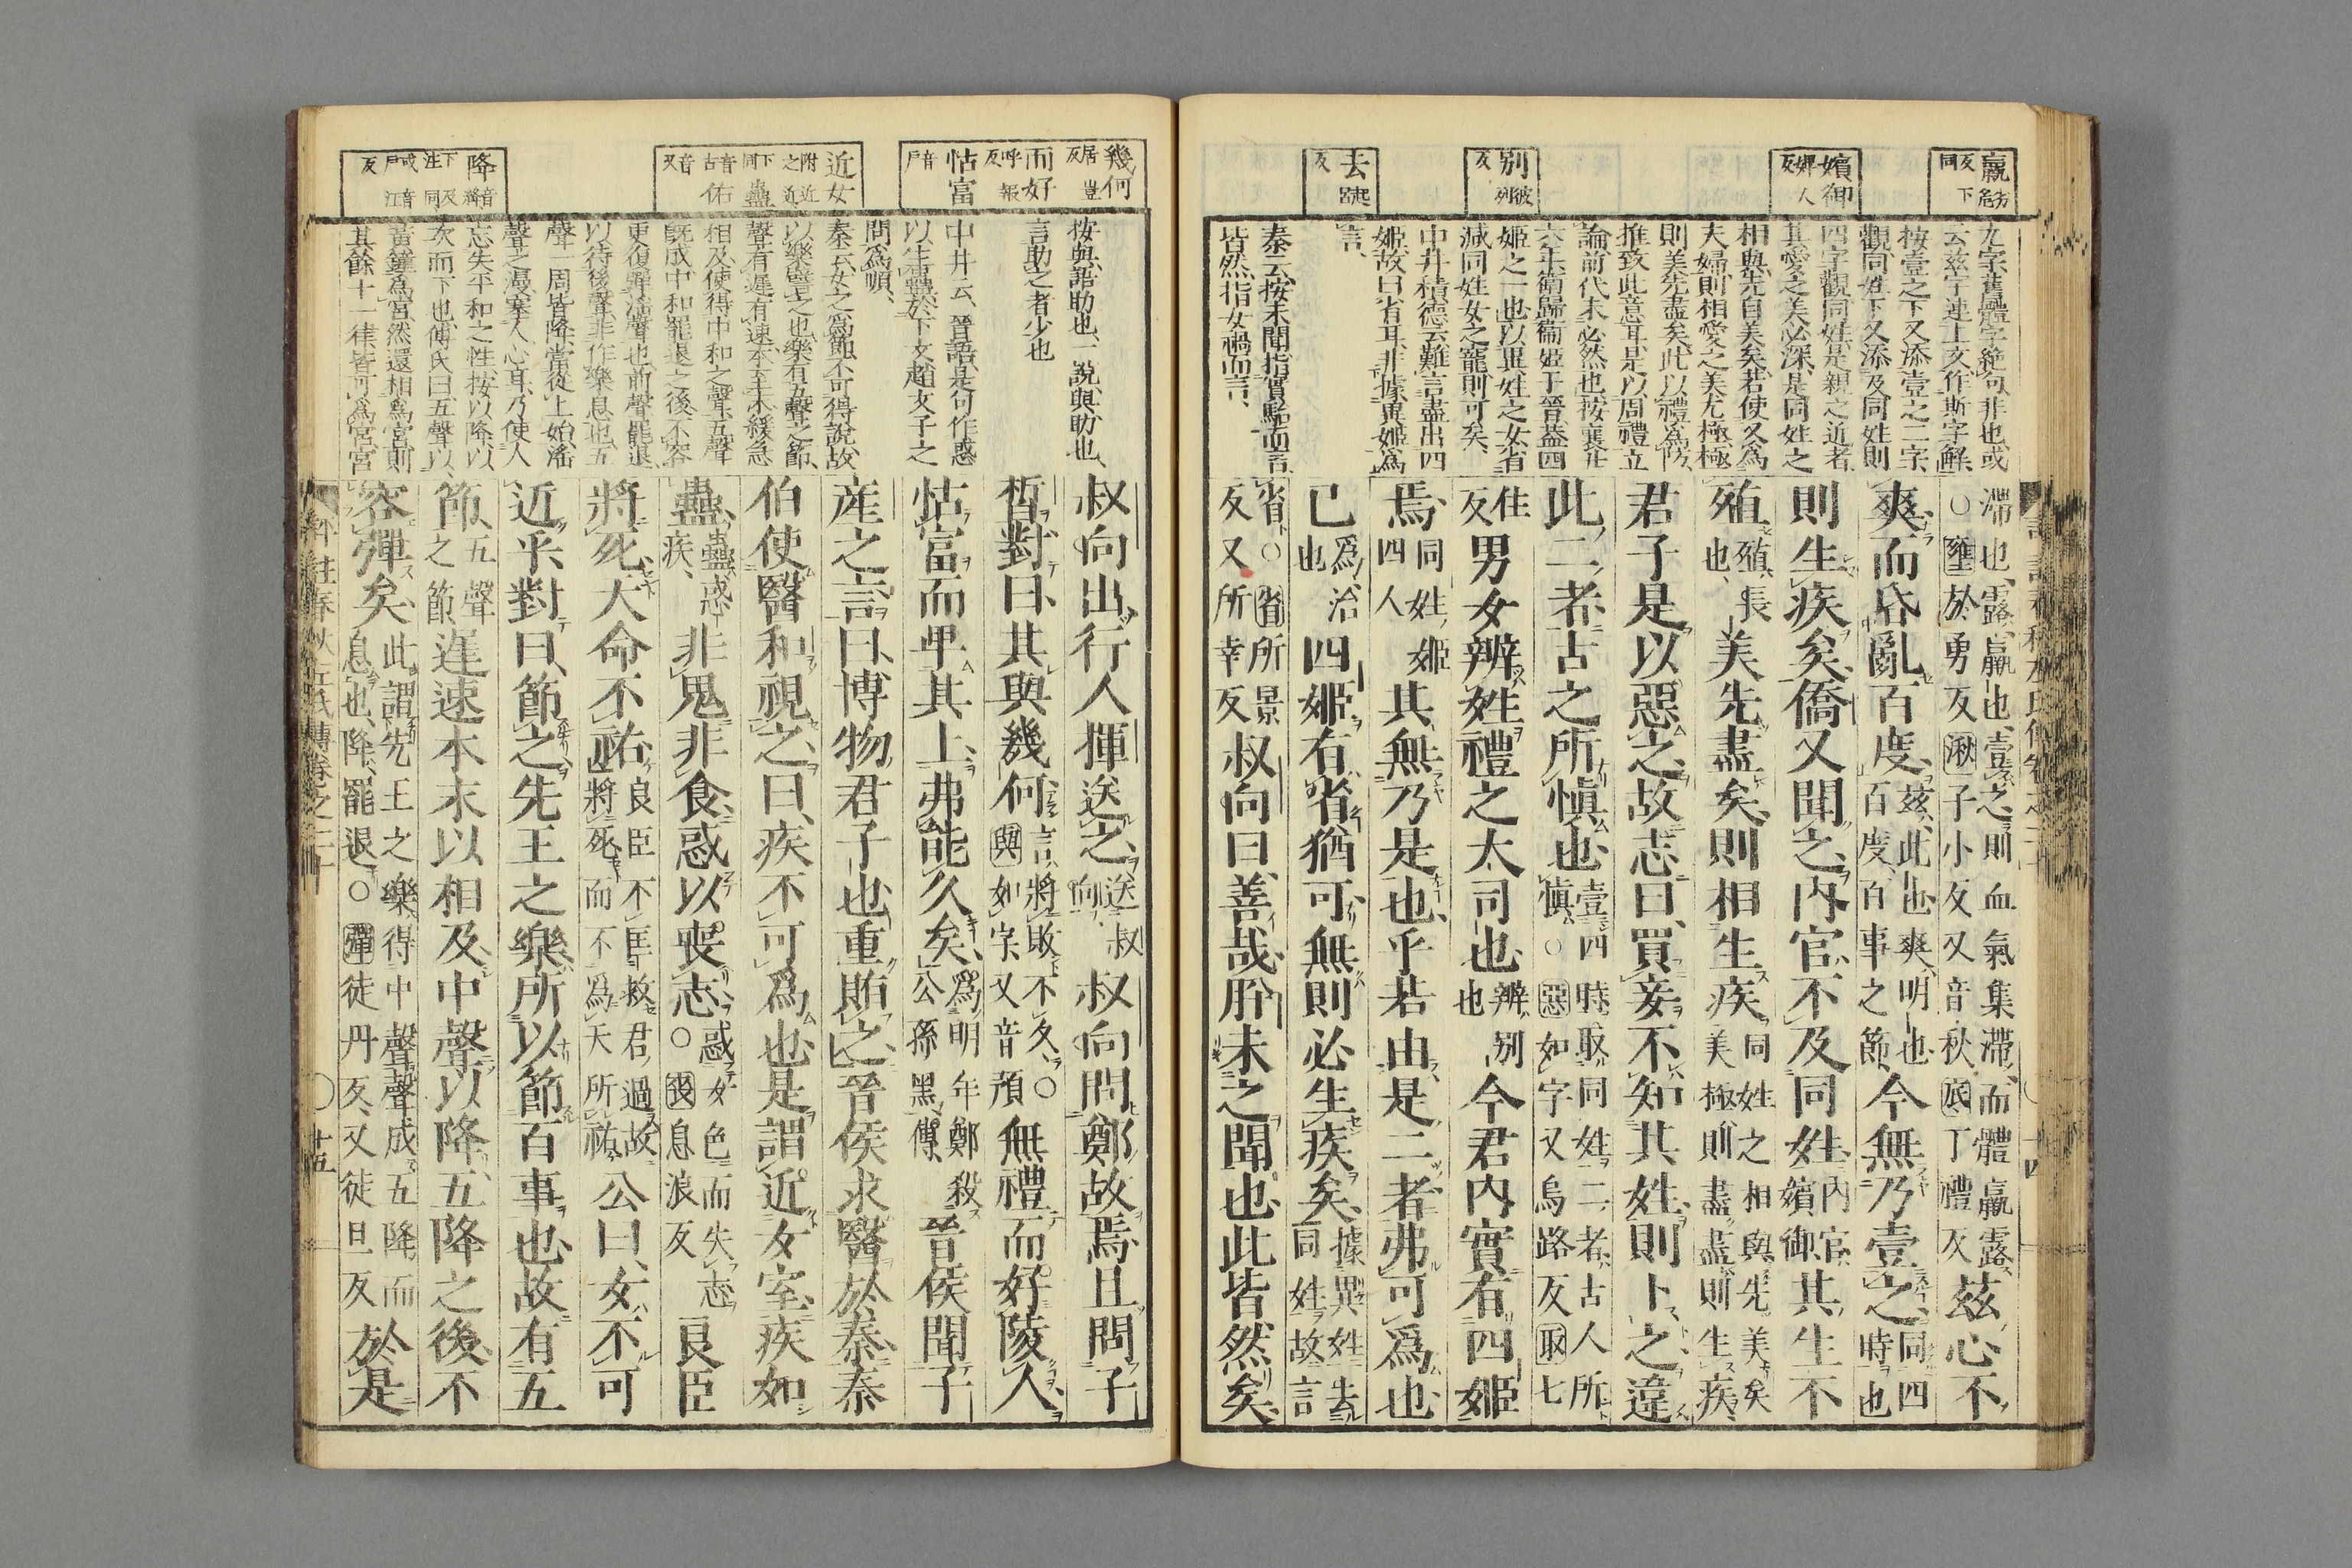 羸劣危反下同
嬪御婢人反
別彼列反
去起呂反
九字舊體字絶句非也或
云玆字連上文作斯字解
按壹之下又添壹之二字
觀同姓下又添及同姓則
四字觀同姓是親之近者
其愛之美必深是同姓之
相與先自美矣若使又爲
夫婦則相愛之美尤極極
則美先盡矣此以禮爲防
推致此意耳是以周禮立
論前代未必然也按襄廿
六年衞歸衞姬于晉葢四
姬之一也以異姓之女省
減同姓女之寵則可矣
中井積德云難言盡出四
姬故曰省耳非據異姬爲
言
秦云按未聞指實駈而言
皆然指女禍而言
滯也露羸也壹之則血氣集滯而體羸露
○壅於勇反湫子小反又音秋底丁禮反
玆心不
爽而昏亂百度
玆此也爽明也
百度百事之節
今無乃壹之
同四
時也
則生疾矣僑又聞之内官不及同姓
内官
嬪御
其生不
殖
殖長
也
美先盡矣則相生疾
同姓之相與先美矣
美極則盡盡則生疾
君子是以惡之故志曰買妾不知其姓則卜之違
此二者古之所愼也
壹四時取同姓二者古人所
愼○惡如字又烏路反取七
住
反
男女辨姓禮之大司也
辨別
也
今君内實有四姬
焉
同姓姬
四人
其無乃是也乎若由是二者弗可爲也
已
爲治
也
四姬有省猶可無則必生疾矣
據異姓去
同姓故言
省○省所景
反又所幸反
叔向曰善哉肸未之聞也此皆然矣
幾何居豈反
而好呼報反
怙富音戸
近女附近之近下同
蠱音古
佑音又
降音絳下及注同
戸江反
按與語助也一説與助也
言助之者少也
中井云晉語是何作惑
以生蠱於下文趙文子之
問爲順
秦云女之爲節不可得説故
以樂譬之也樂有五聲之節
聲有遲有速本至末緩急
相及使得中和之聲五聲
既成中和罷退之後不容
更復彈淫聲也前聲罷退
以待後聲非作樂息也五
聲一周皆降當從上始淫
聲之漫塞人心耳乃使人
忘失平和之性按以降以
次而下也傅氏曰五聲以
黃鐘爲宮然還相爲宮則
其餘十一律皆可爲宮宮
叔向出行人揮送之
送叔
向
叔向問鄭故焉且問子
皙對曰其與幾何
言將敗不久○
與如字又音預
無禮而好陵人
怙富而卑其上弗能久矣
爲明年鄭殺
公孫黑傳
晉侯聞子
産之言曰博物君子也重賄之晉侯求醫於秦秦
伯使醫和視之曰疾不可爲也是謂近女室疾如
蠱
蠱惑
疾
非鬼非食惑以喪志
惑女色而失志
○喪息浪反
良臣
將死天命不祐
良臣不匡救君過故
將死而不爲天所祐
公曰女不可
近乎對曰節之先王之樂所以節百事也故有五
節
五聲
之節
遲速本末以相及中聲以降五降之後不
容彈矣
此謂先王之樂得中聲聲成五降而
息也降罷退○彈徒丹反又徒旦反
於是
十五